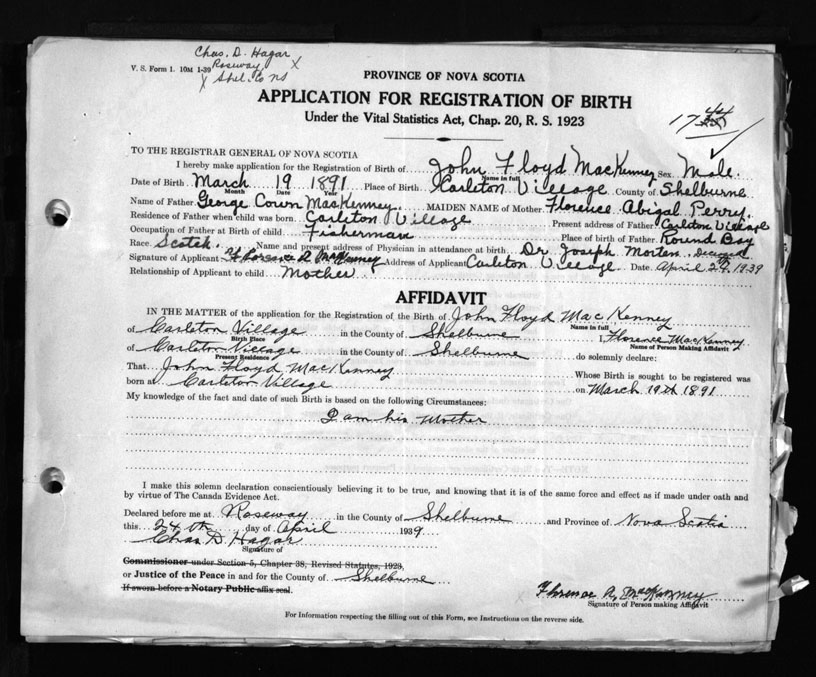 Chas. D. Hagar
Roseway
Shel. Co NS
V. S. Form 1. 10M 1-39
PROVINCE OF NOVA SCOTIA
APPLICATION FOR REGISTRATION OF BIRTH
Under the Vital Statistics Act, Chap. 20, R. S. 1923
TO THE REGISTRAR GENERAL OF NOVA SCOTIA
I hereby make application for the Registration of Birth of John Floyd MacKenney Sex Male
Name in full
Date of Birth March 19 1891 Place of Birth Carleton Village County of Shelburne
Month Day Year
Name of Father George Cown MacKenney MAIDEN NAME of Mother Florence Abigal Perry
Residence of Father when child was born Carleton Village Present address of Father Carleton Village
Occupation of Father at Birth of child Fisherman Place of birth of Father Round Bay
Race Scotch Name and present address of Physician in attendance at birth Dr Joseph Morten Deceased
Signature of Applicant Florence A MacKenney Address of Applicant Carleton Village Date April 24th 1939
Relationship of Applicant to child Mother
AFFIDAVIT
IN THE MATTER of the application for the Registration of the Birth of John Floyd MacKenney
Name in full
of Carleton Village in the County of Shelburne I, Florence MacKenney
Birth Place Name of Person Making Affidavit
of Carleton Village in the County of Shelburne do solemnly declare:
Present Residence
That John Floyd MacKenney Whose Birth is sought to be registered was
born at Carleton Village on March 19th 1891
My knowledge of the fact and date of such Birth is based on the following Circumstances:
I am his Mother
I make this solemn declaration conscientiously believing it to be true, and knowing that it is of the same force and effect as if made under oath and
by virtue of The Canada Evidence Act.
Declared before me at Roseway in the County of Shelburne and Province of Nova Scotia
this 24th day of April 1939
Chas D. Hagar
Signature of
Commissioner under Section 5, Chapter 38, Revised Statutes, 1923,
or Justice of the Peace in and for the County of Shelburne
If sworn before a Notary Public affix seal.
Florence A. MacKenney
Signature of Person making Affidavit
For Information respecting the filling out of this Form, see Instructions on the reverse side.